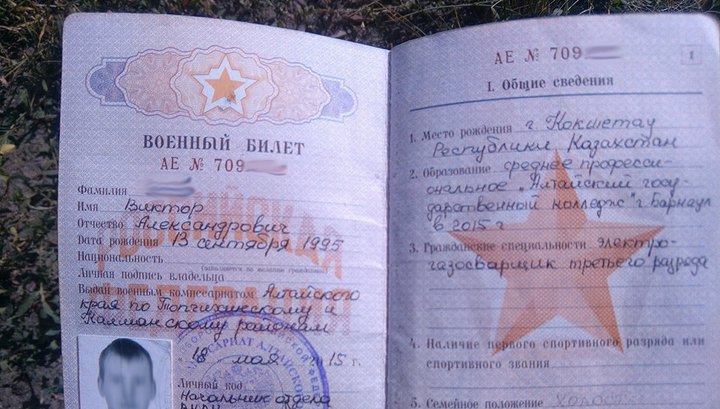 ВОЕННЫЙ БИЛЕТ
АЕ № 709
Фамилия
Имя Виктор
Отчество Александрович
Дата рождения 13 сентября 1995
Национальность
Личная подпись владельца
Выдан военным комиссариатом Алтайского
края по Топчихинскому и
Калманскому районам
18 мая 2015 г.
Личный код
Начальник отдела
АЕ № 709
1
I. Общие сведения
1. Место рождения г. Кокшетау
Республики Казахстан
2. Образование среднее професси-
ональное „Алтайский госу-
дарственный колледж" г. Барнаул
в 2015 г
3. Гражданские специальности электро-
газосварщик третьего разряда
4. Наличие первого спортивного разряда или
спортивного звания
5. Семейное положение Холост